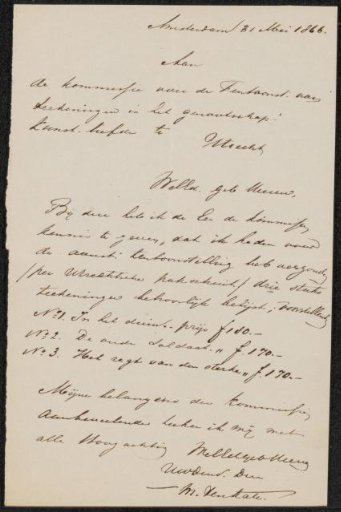 Amsterdam 31 Mei 1866.
Aan
de kommissie voor de Tentoonst. van
teekeningen in het genootschap:
Kunstliefde te
Utrecht
Welld. geb Heeren,
Bij deze heb ik de Eer de kommissie,
kennis te geven, dat ik heden voor
de aanst. tentoonstelling heb verzonden
(per Utrechtsche pakschuit) drie stuks
teekeningen behoorlijk belijst, voorstellend
No 1. In het duin. prijs f 180.-
No 2. De oude Soldaat. " f. 170.-
No 3. Het regt van den sterke " f. 170.-
Mijne belangens der kommissie,
aanbevelende teeken ik mij met
alle Hoogachting
WelEdelgeb Heeren
Uw Dienst. Dien
M. ten Kate.